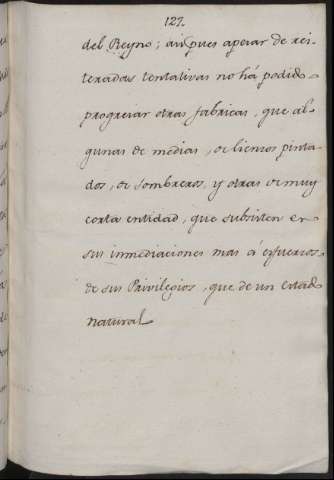 127.
del Reyno; assi pues apesar de rei-
teradas tentativas no há podido
progresar otras fabricas, que al-
gunas de medias, de lienzos pinta-
dos, de sombreros, y otras de muy
corta entidad, que subsisten en
sus inmediaciones mas á esfuerzos
de sus Privilegios, que de un estado
natural